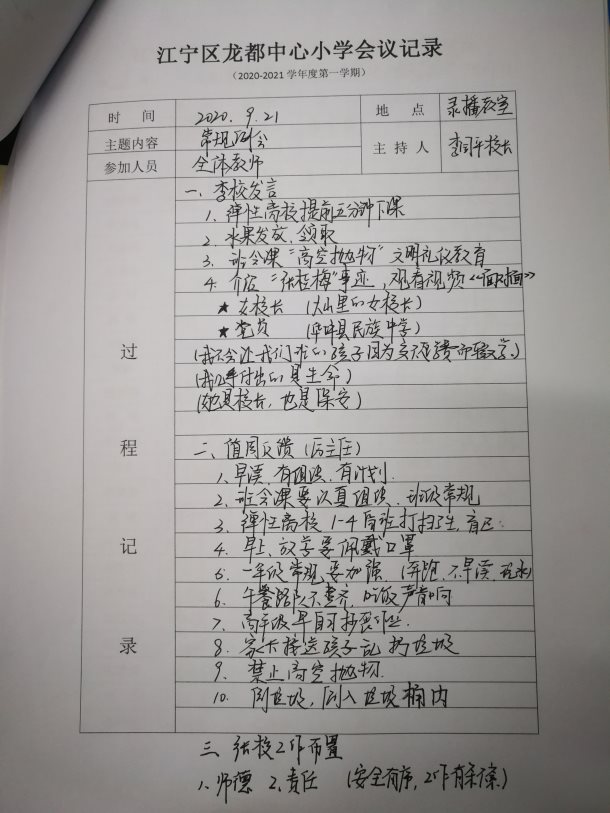 江宁区龙都中心小学会议记录
（2020-2021 学年度第一学期）
时 间 2020.9.21 地 点 录播教室
主题内容 常规例会 主 持 人 李校长
参加人员 全体教师
过 程 记 录
一、李校发言
1、弹性离校提前五分钟下课
2、水果发放、领取
3、班会课"高空抛物"文明礼仪教育
4、介绍"张桂梅"事迹，观看视频《面对面》
★ 女校长 （大山里的女校长）
★ 党员 （华坪县民族中学）
（我不会让我们的孩子因为交不起费而辍学）
（我付出的是生命）
（她是校长，也是保安）
二、值周反馈（主任）
1、早读，有组织，有计划.
2、班会课要认真组织，班级常规
3、弹性离校 1-4 打扫卫生，
4、早上、放学要佩戴口罩
5、一年级常规要加强，（奔跑，不早读，玩水）
6、午餐路队不整齐，吃饭声音响
7、高年级早自习抄袭作业
8、家长接送孩子乱扔垃圾
9、禁止高空抛物.
10、倒垃圾，倒入垃圾桶内
三、张校工作布置
1、师德 2、责任 （安全有序，工作有条）